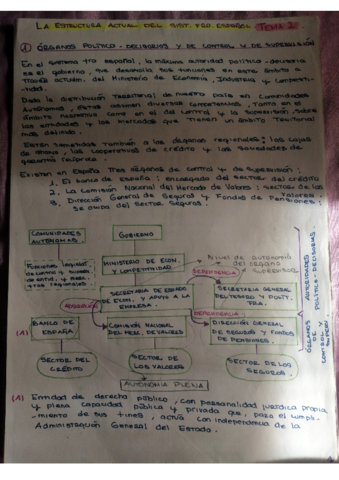 LA ESTRUCTURA ACTUAL DEL SIST. FRO ESPAÑOL TEMA 2
1) ÓRGANOS POLÍTICO-DECISORIOS Y DE CONTROL Y DE SUPERVISIÓN
En el sistema fro español, la máxima autoridad política-decisoria
es el gobierno, que desarrolla sus funciones en este ámbito a
través acción, del Ministerio de Economía, Industria y Competiti-
vidad.
Dada la distribución territorial de nuestro país en Comunidades
Autónomas, éstas asumen diversas competencias, tanto en el
ámbito normativo como en el del control y la supervisión sobre
las entidades y los mercados que tienen un ámbito territorial
más definido.
Están tematizado también a los órganos regionales: las cajas
de ahorro, las cooperativas de crédito y las sociedades de
garantía recíproca.
Existen en España tres órganos de control y de supervisión:
1. El banco de España: encargado del sector del crédito
2. La Comisión Nacional del Mercado de Valores: sector de los valores
3. Dirección General de Seguros y Fondos de Pensiones:
se ocupa del sector seguros.
COMUNIDADES AUTÓNOMAS
GOBIERNO
MINISTERIO DE ECON. Y COMPETITIVIDAD
Nivel de autonomía del órgano supervisor
DEPENDENCIA
SECRETARÍA DE ESTADO DE ECON. Y APOYO A LA EMPRESA.
SECRETARÍA GENERAL DEL TESORO Y POLÍT. FRA.
DEPENDENCIA
AUTORIDADES POLÍTICO-DECISORIAS
(A) BANCO DE ESPAÑA
COMISIÓN NACIONAL DEL MERC. DE VALORES
DIRECCIÓN GENERAL DE SEGUROS Y FONDOS DE PENSIONES.
ÓRGANOS DE CONTROL Y SUPERV
SECTOR DEL CRÉDITO
SECTOR DE LOS VALORES
SECTOR DE LOS SEGUROS.
AUTONOMÍA PLENA
(A) Entidad de derecho público, con personalidad jurídica propia
y plena capacidad pública y privada que, para el cumpli-
miento de sus fines, actúa con independencia de la
Administración General del Estado.